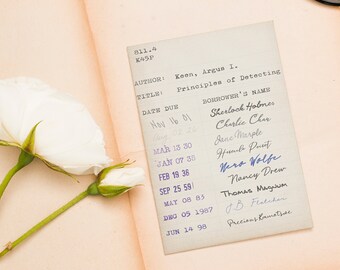 811.4
K45P
AUTHOR: Keen, Argus I.
TITLE: Principles of Detecting
DATE DUE BORROWER'S NAME
Nov 16 01 Sherlock Holmes
Charlie Chan
Jane Marple
MAR 13 30 Hercule Poirot
JAN 07 35 Nero Wolfe
FEB 19 36 Nancy Drew
SEP 25 59 Thomas Magnum
MAY 08 83 J.B. Fletcher
DEC 05 1987 Precious Ramotswe
JUN 14 98